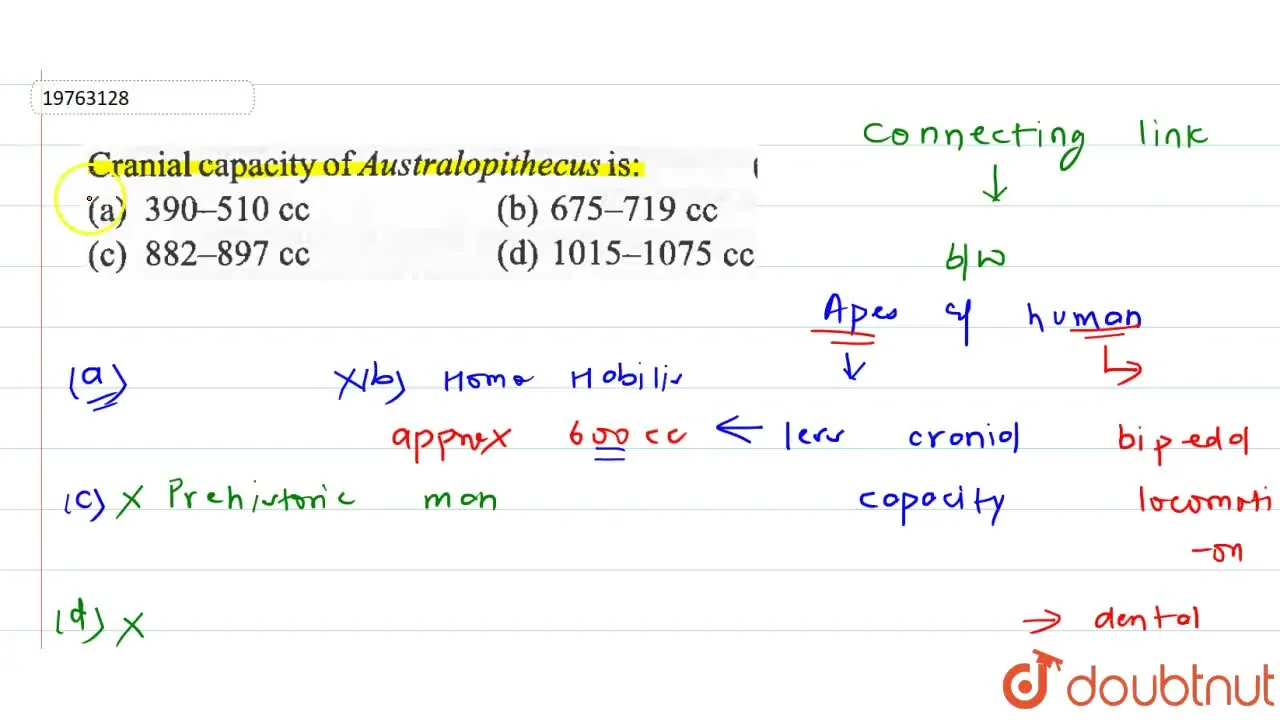 19763128
Cranial capacity of Australopithecus is:
(a) 390–510 cc (b) 675–719 cc
(c) 882–897 cc (d) 1015–1075 cc
Connecting link
↓
b/w
Apes & human
↓
less cranial
capacity
bipedal
locomoti
-on
→ dental
(a) X(b) Homo Habilis
approx 600 cc ←
(c) X Prehistoric man
(d) X
doubtnut